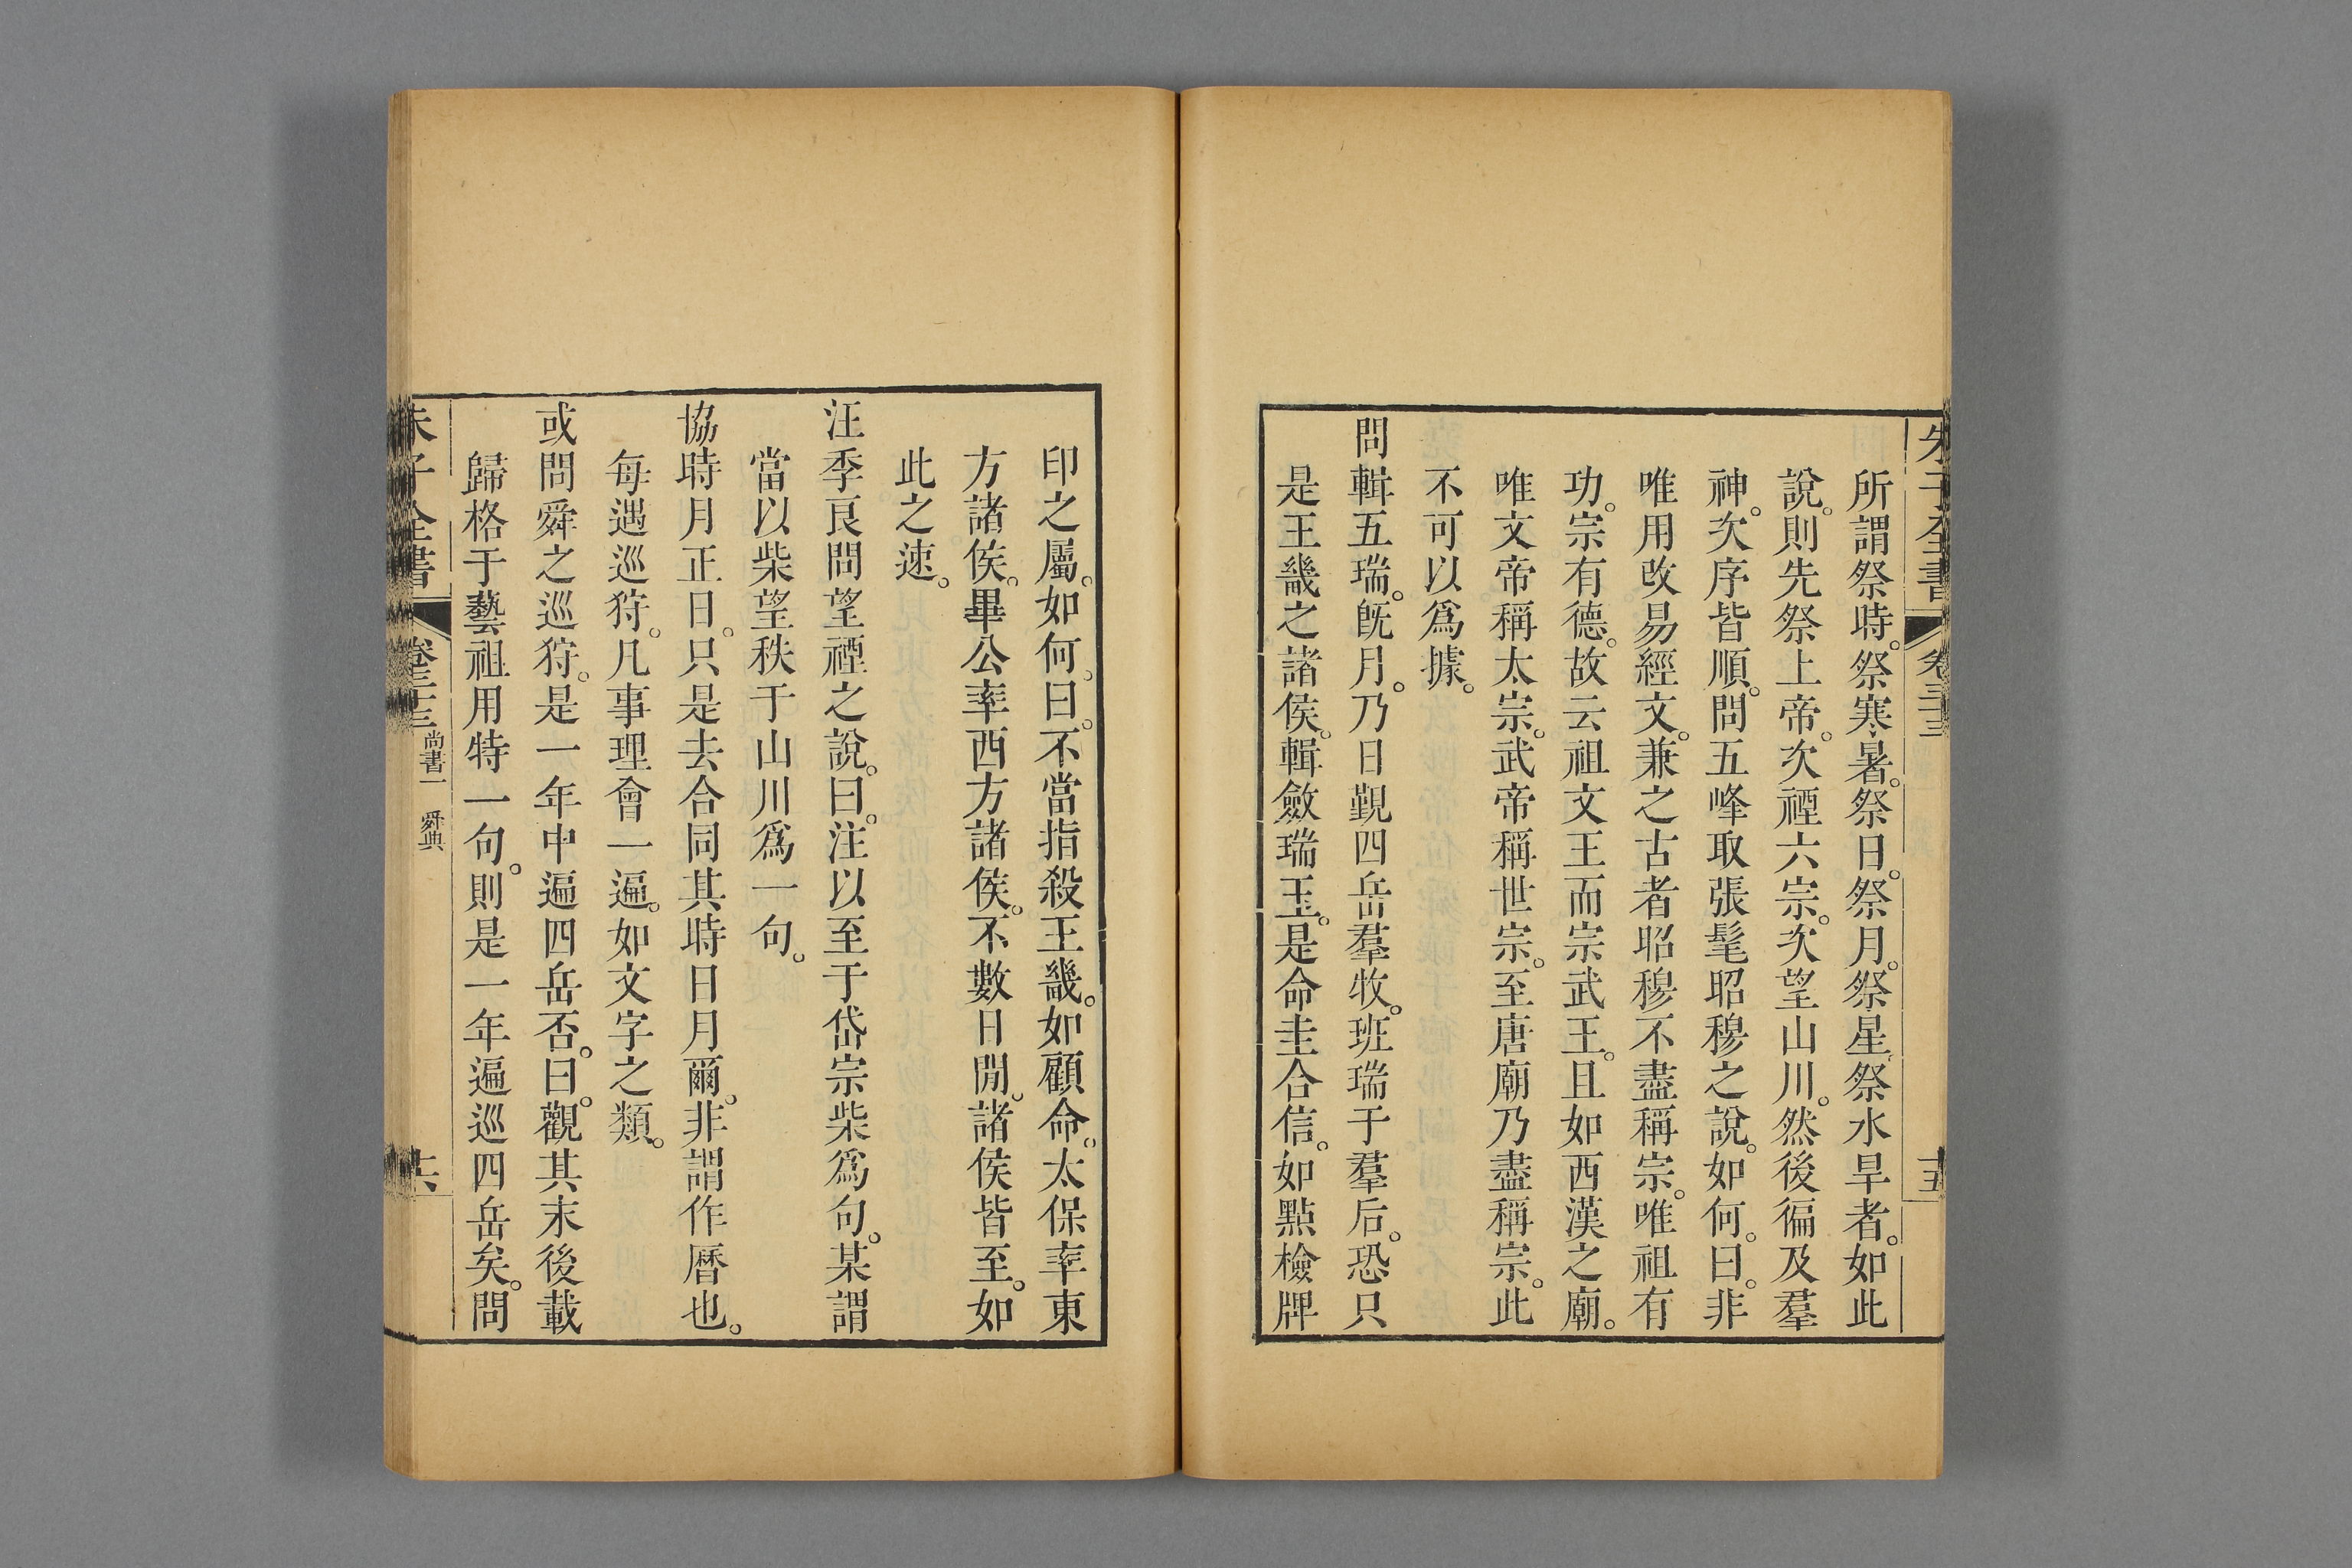 朱子全書 卷三十三 十五
所謂祭時。祭寒暑。祭日。祭月。祭星。祭水旱者。如此
說。則先祭上帝。次禋六宗。次望山川。然後徧及羣
神。次序皆順。問五峰取張髦昭穆之說。如何。曰。非
唯用改易經文。兼之古者昭穆不盡稱宗。唯祖有
功。宗有德。故云祖文王而宗武王。且如西漢之廟。
唯文帝稱太宗。武帝稱世宗。至唐廟乃盡稱宗。此
不可以爲據。
問輯五瑞。旣月。乃日覲四岳羣牧。班瑞于羣后。恐只
是王畿之諸侯。輯斂瑞玉。是命圭合信。如點檢牌
印之屬。如何。曰。不當指殺王畿。如顧命。太保率東
方諸侯。畢公率西方諸侯。不數日閒。諸侯皆至。如
此之速。
汪季良問望禋之說。曰。注以至于岱宗柴爲句。某謂
當以柴望秩于山川爲一句。
協時月正日。只是去合同其時日月爾。非謂作曆也。
每遇巡狩。凡事理會一遍。如文字之類。
或問舜之巡狩。是一年中遍四岳否。曰。觀其末後載
歸格于藝祖用特一句。則是一年遍巡四岳矣。問
朱子全書 卷三十三 尚書一 舜典 十六